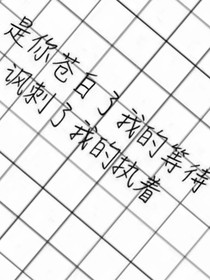 是你苍白了我的等待
讽刺了我的执着